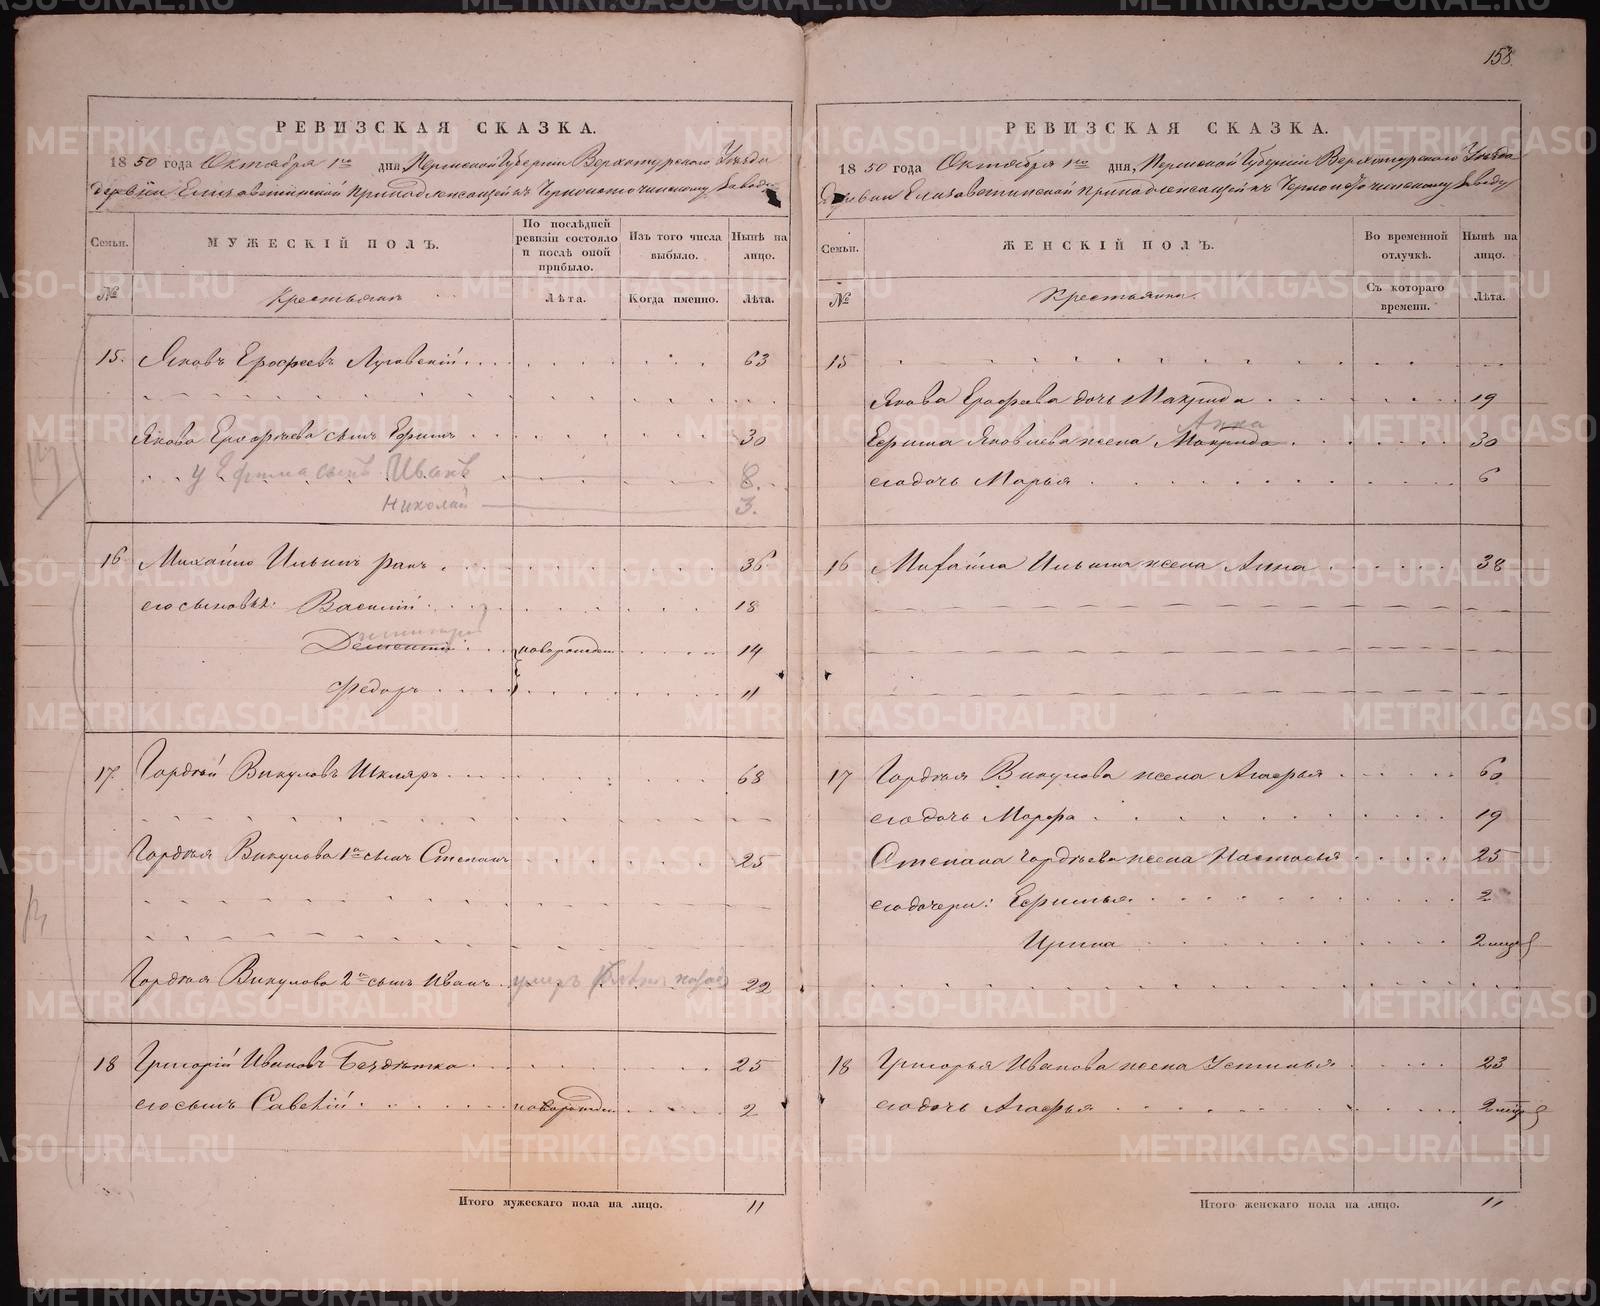 158.
РЕВИЗСКАЯ СКАЗКА.
1850 года Октября 1го дня, Пермской Губерніи Верхотурскаго Уѣзда
деревни Елизаветинской принадлежащей къ Черноисточинскому Заводу
Семьи. МУЖЕСКІЙ ПОЛЪ. По послѣдней ревизіи состояло и послѣ оной прибыло. Изъ того числа выбыло. Нынѣ на лицо.
№ Крестьянъ Лѣта. Когда именно. Лѣта.
15. Яковъ Ерофеевъ Луговскій 63
Якова Ерофѣева сынъ Ефимъ 30
У Ефима сынъ Иванъ 8.
Николай 3.
16 Михайло Ильинъ 36
его сыновья: Василій 18
Дементій новорожден 14
Федоръ 11
17. Гордѣй Викуловъ Шкляръ 68
Гордѣя Викулова 1й сынъ Степанъ 25
Гордѣя Викулова 2й сынъ Иванъ умеръ 22
18 Григорій Ивановъ Бездѣтко 25
его сынъ Савелій новорожден 2
Итого мужескаго пола на лицо. 11
РЕВИЗСКАЯ СКАЗКА.
1850 года Октября 1го дня, Пермской Губерніи Верхотурскаго Уѣзда
деревни Елизаветинской принадлежащей къ Черноисточинскому Заводу
Семьи. ЖЕНСКІЙ ПОЛЪ. Во временной отлучкѣ. Нынѣ на лицо.
№ Крестьянки. Съ котораго времени. Лѣта.
15
Якова Ерофева дочь Макрида 19
Анна
Ефима Яковлева жена Макрида 30
его дочь Марья 6
16 Михайла Ильина жена Анна 38
17 Гордѣя Викулова жена Агафья 60
его дочь Марфа 19
Степана Гордѣева жена Настасья 25
его дочери: Ефимья 2
Ирина 2 мѣся
18 Григорья Иванова жена Устинья 23
его дочь Агафья 2 мѣся
Итого женскаго пола на лицо. 11
METRIKI.GASO-URAL.RU